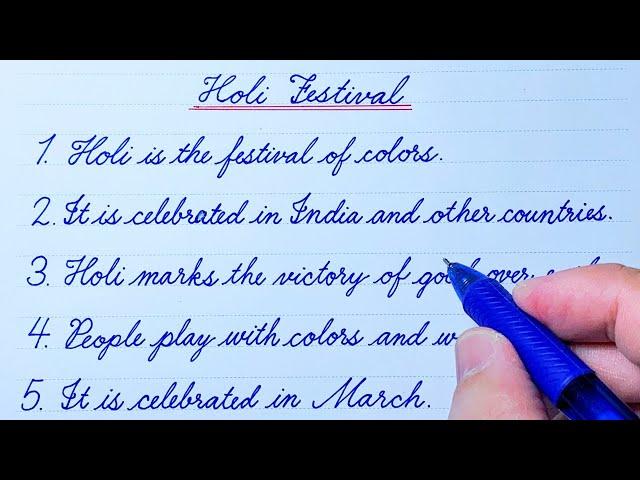 Holi Festival
1. Holi is the festival of colors.
2. It is celebrated in India and other countries.
3. Holi marks the victory of good over
4. People play with colors and
5. It is celebrated in March.